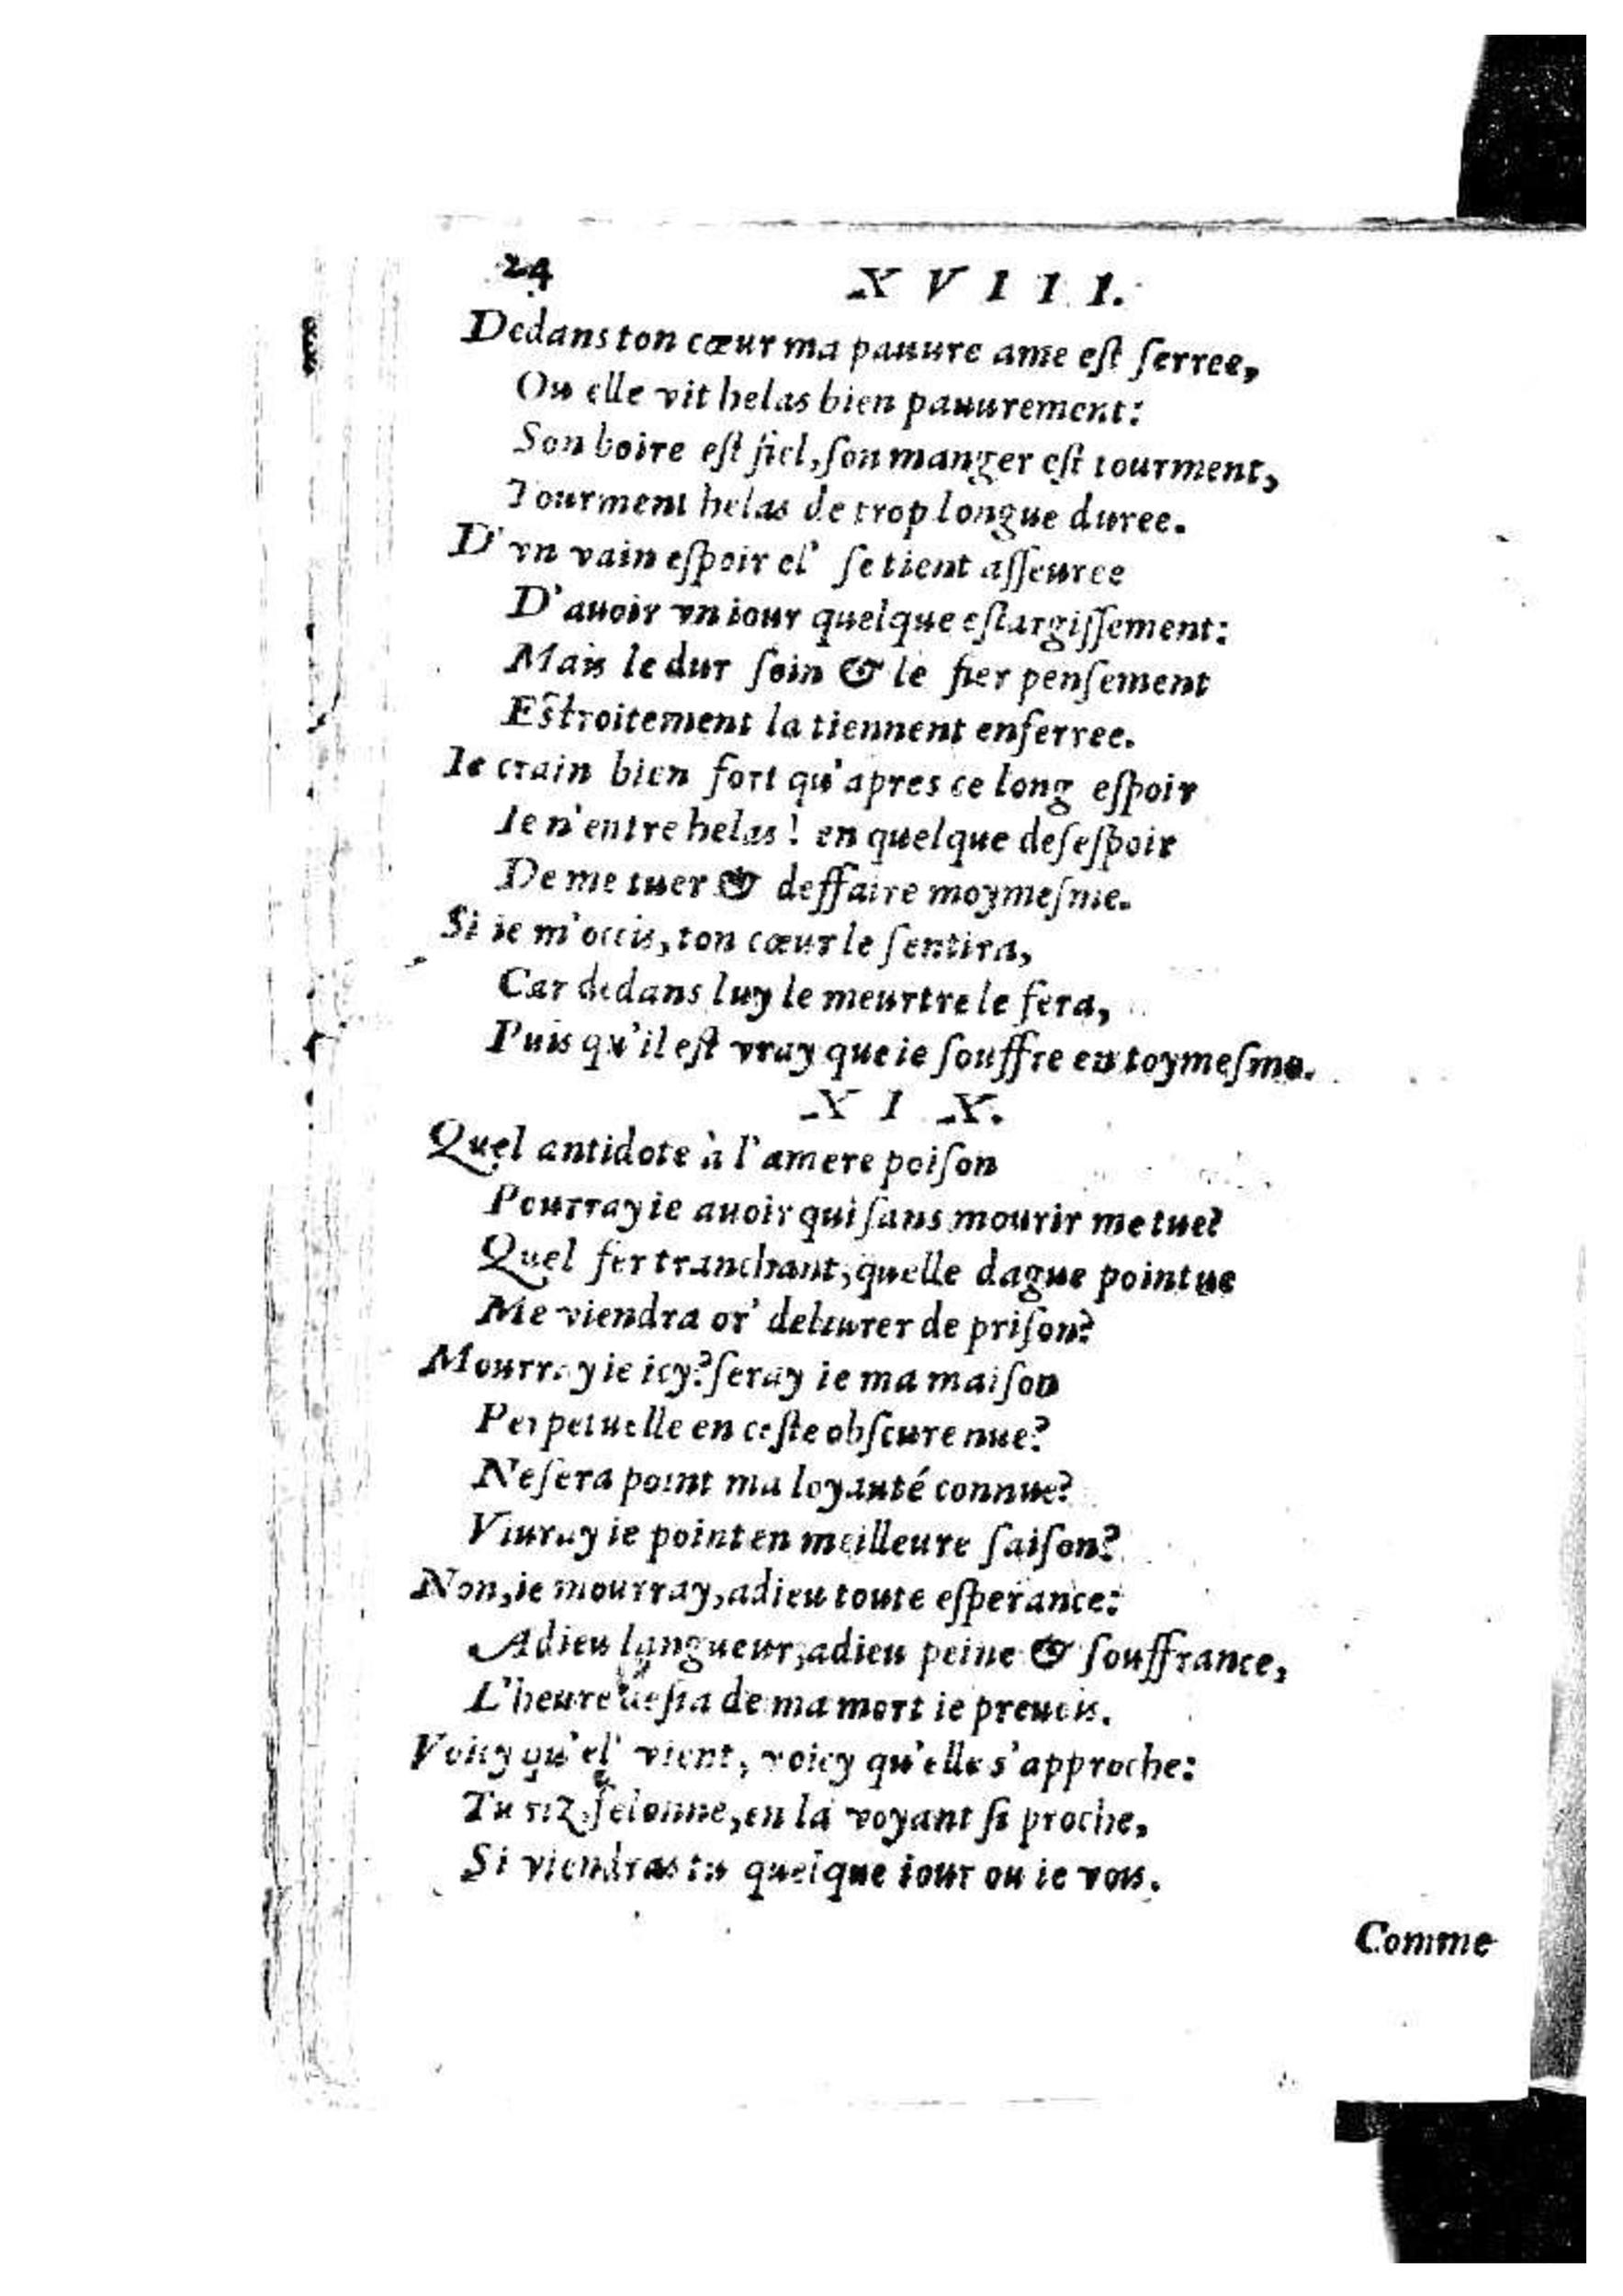 24
XVIII.
Dedans ton cœur ma pauure ame eſt ſerree,
Ou elle vit helas bien pauurement:
Son boire eſt fiel, ſon manger eſt tourment,
Tourment helas de trop longue duree.
D'vn vain eſpoir el' ſe tient aſſeuree
D'auoir vn iour quelque eſlargiſſement:
Mais le dur ſoin & le fier penſement
Eſtroitement la tiennent enferree.
Ie crain bien fort qu'apres ce long eſpoir
Ie n'entre helas! en quelque deſeſpoir
De me tuer & deffaire moymeſme.
Si ie m'occis, ton cœur le ſentira,
Car dedans luy le meurtre ſe fera,
Puis qu'il eſt vray que ie ſouffre en toymeſme.
XIX.
Quel antidote à l'amere poiſon
Pourray ie auoir qui ſans mourir me tue?
Quel fer tranchant, quelle dague pointue
Me viendra or' deliurer de priſon?
Mourray ie icy? ſeray ie ma maiſon
Perpetuelle en ceſte obſcure nue?
Ne ſera point ma loyauté connue?
Viuray ie point en meilleure ſaiſon?
Non, ie mourray, adieu toute eſperance:
Adieu langueur, adieu peine & ſouffrance,
L'heure deſia de ma mort ie preuois.
Voicy qu'el' vient, voicy qu'elle s'approche:
Tu riz, felonne, en la voyant ſi proche,
Si viendras tu quelque iour ou ie vois.
Comme